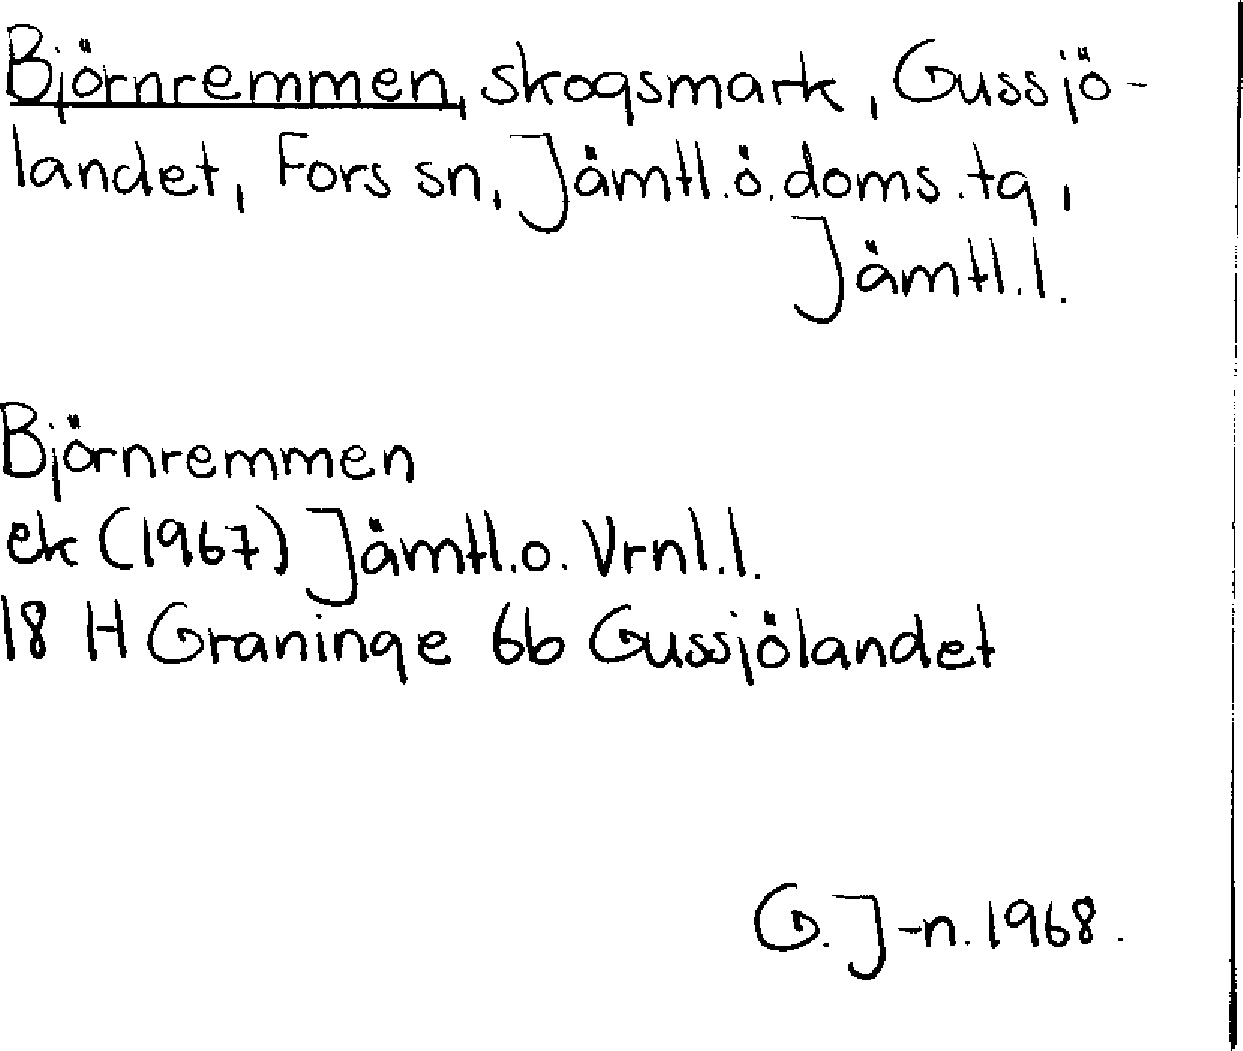 Björnremmen, skogsmark, Gussjö-
landet, Fors sn, Jämtl.ö.doms.tg,
Jämtl.l.
Björnremmen
ek (1967) Jämtl.o. Vrnl.l.
18 H Graninge 6b Gussjölandet
G. J-n. 1968.